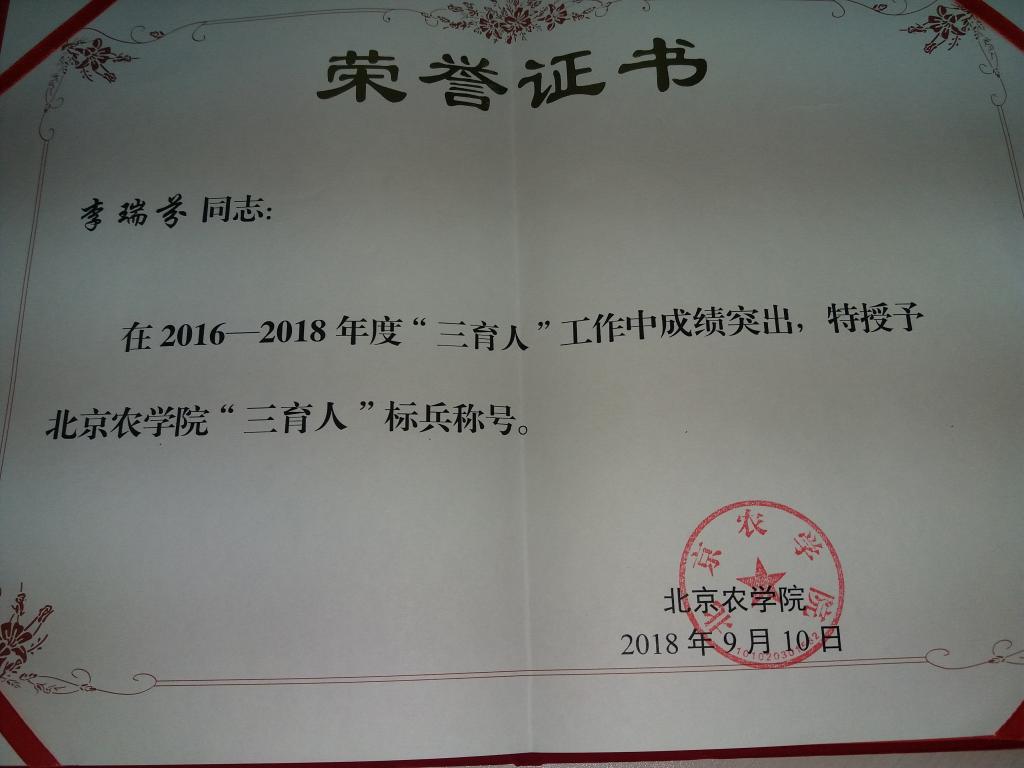 荣誉证书
李瑞芬 同志:
在 2016—2018 年度“三育人”工作中成绩突出，特授予
北京农学院“三育人”标兵称号。
北京农学院
北京农学院
2018 年 9 月 10 日